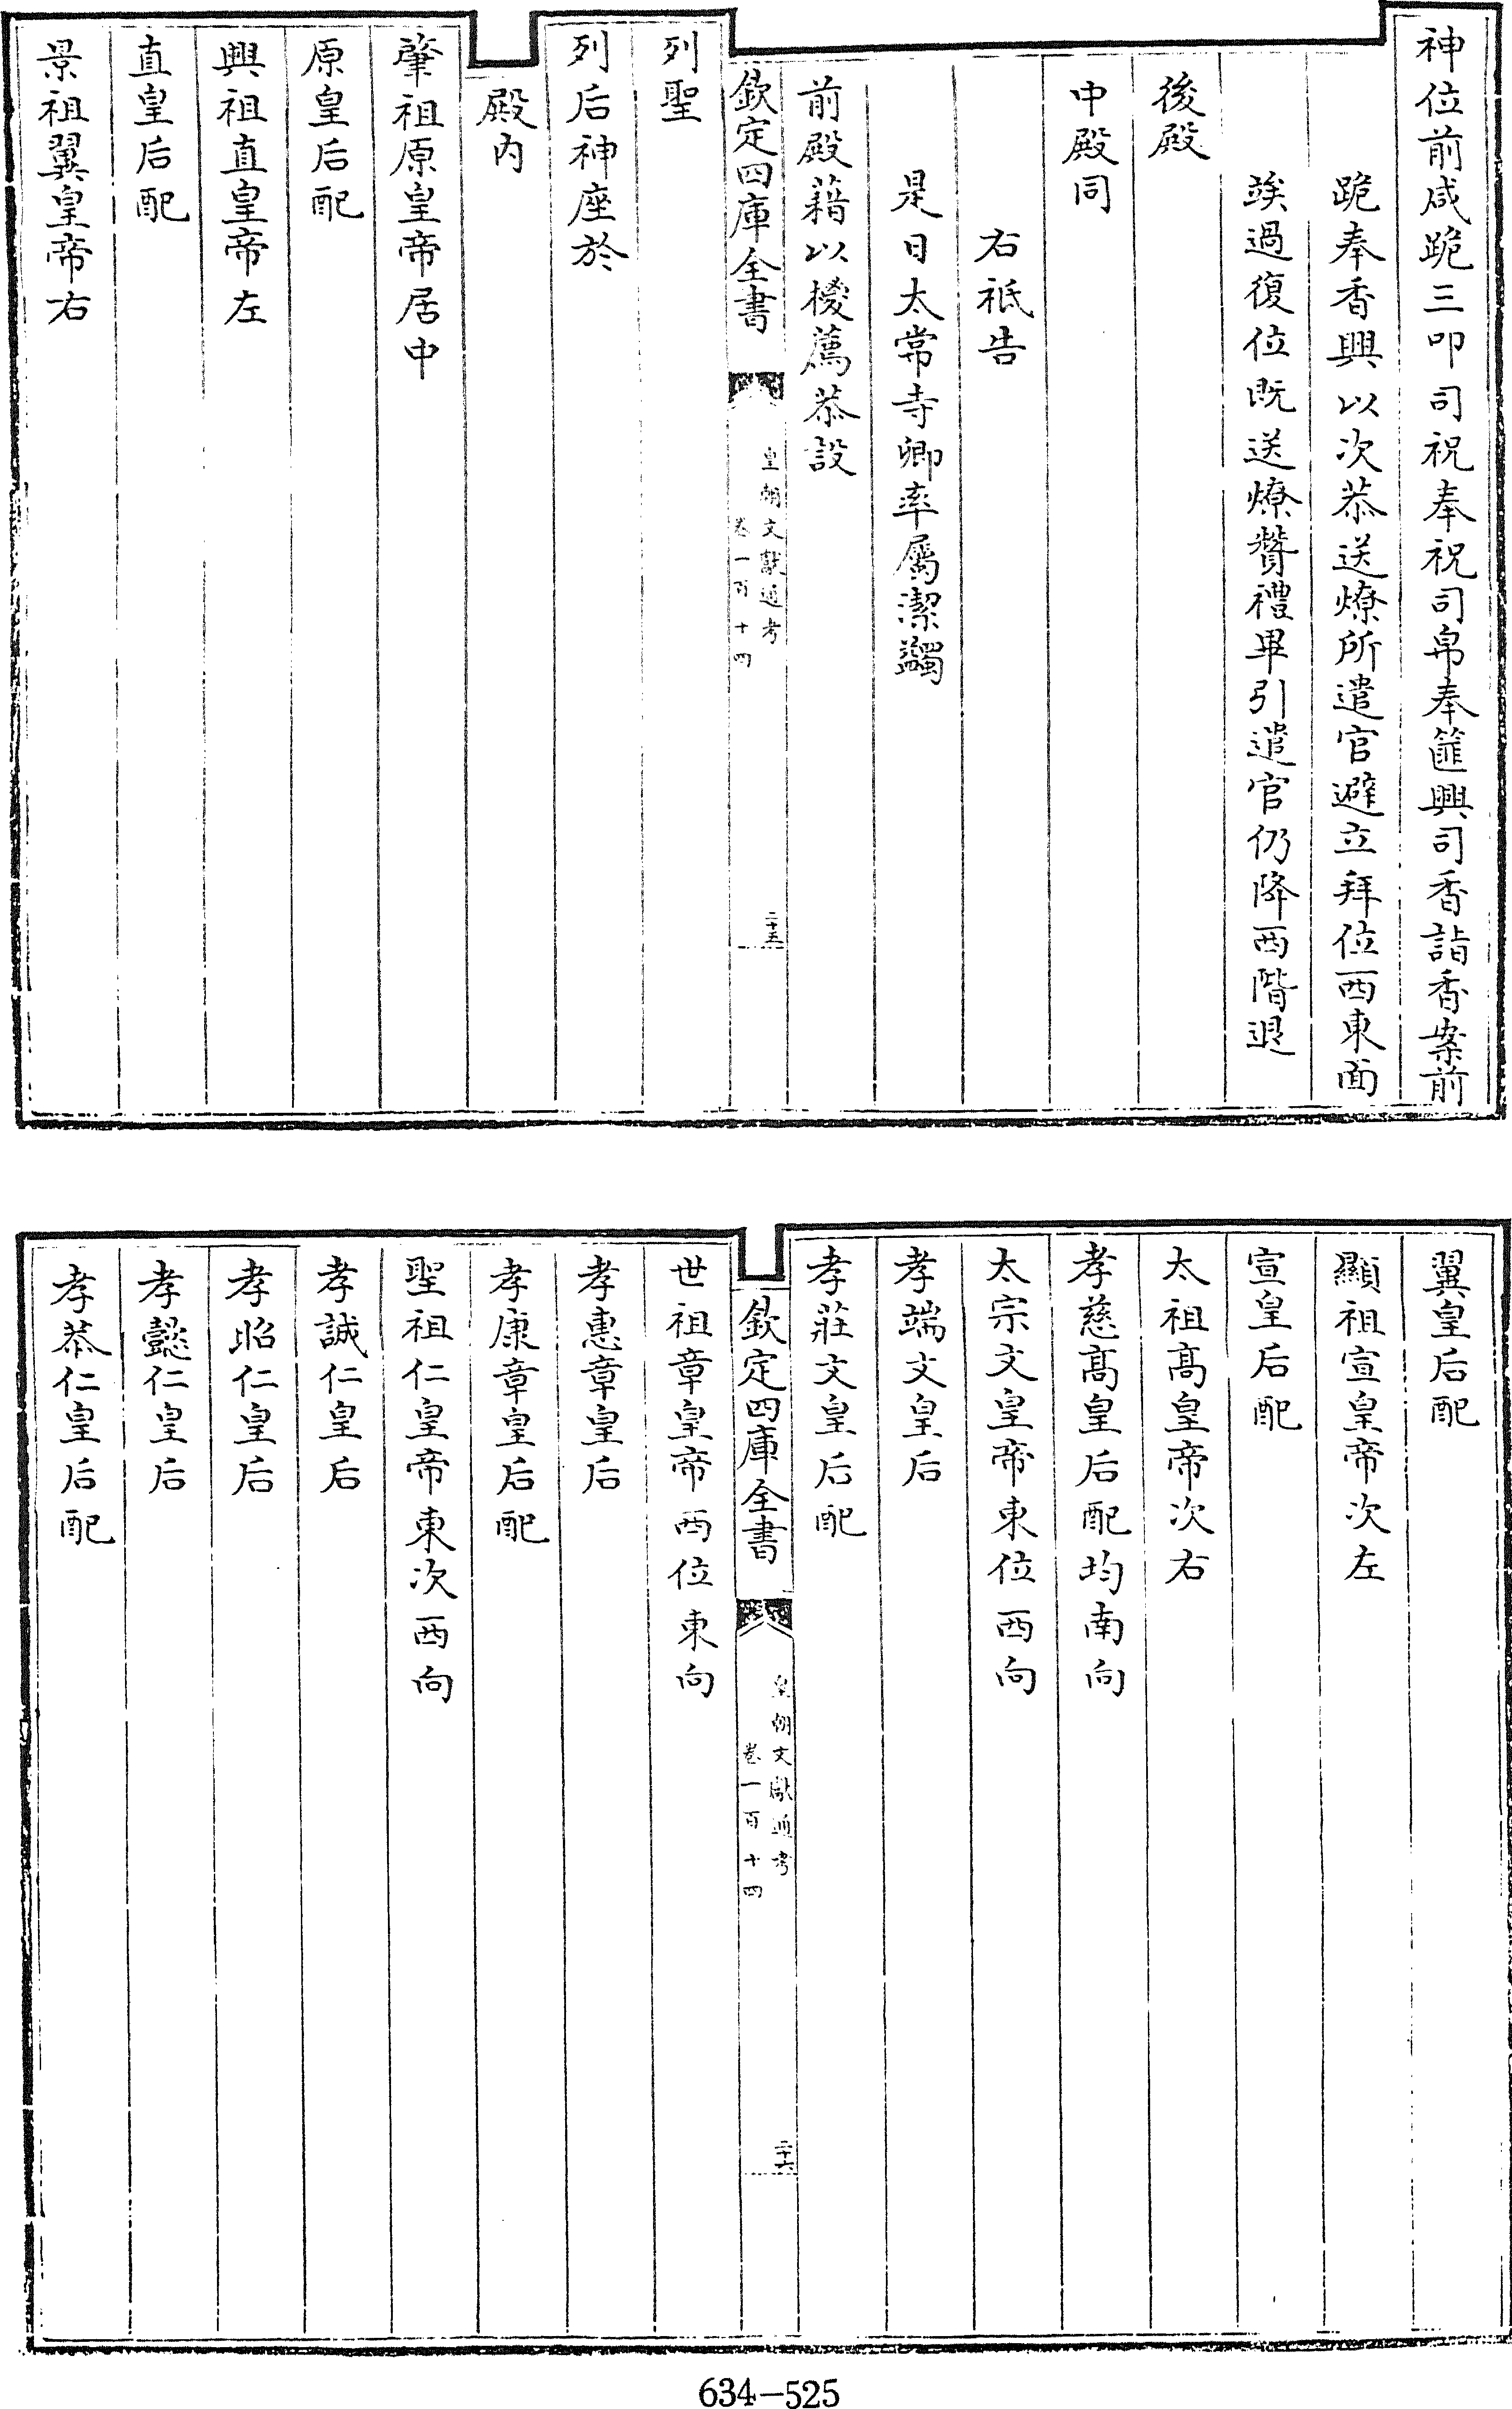 神位前咸跪三叩司祝奉祝司帛奉篚興司香詣香案前
跪奉香興以次恭送燎所遣官避立拜位西東面
竢過復位既送燎贊禮畢引遣官仍降西階退
後殿
中殿同
右祗告
是日太常寺卿率屬潔蠲
前殿藉以㯶薦恭設
欽定四庫全書
皇朝文獻通考
卷一百十四
二十五
列聖
列后神座於
殿內
肇祖原皇帝居中
原皇后配
興祖直皇帝左
直皇后配
景祖翼皇帝右
翼皇后配
顯祖宣皇帝次左
宣皇后配
太祖高皇帝次右
孝慈高皇后配均南向
太宗文皇帝東位西向
孝端文皇后
孝莊文皇后配
欽定四庫全書
皇朝文獻通考
卷一百十四
二十六
世祖章皇帝西位東向
孝惠章皇后
孝康章皇后配
聖祖仁皇帝東次西向
孝誠仁皇后
孝昭仁皇后
孝懿仁皇后
孝恭仁皇后配
634-525